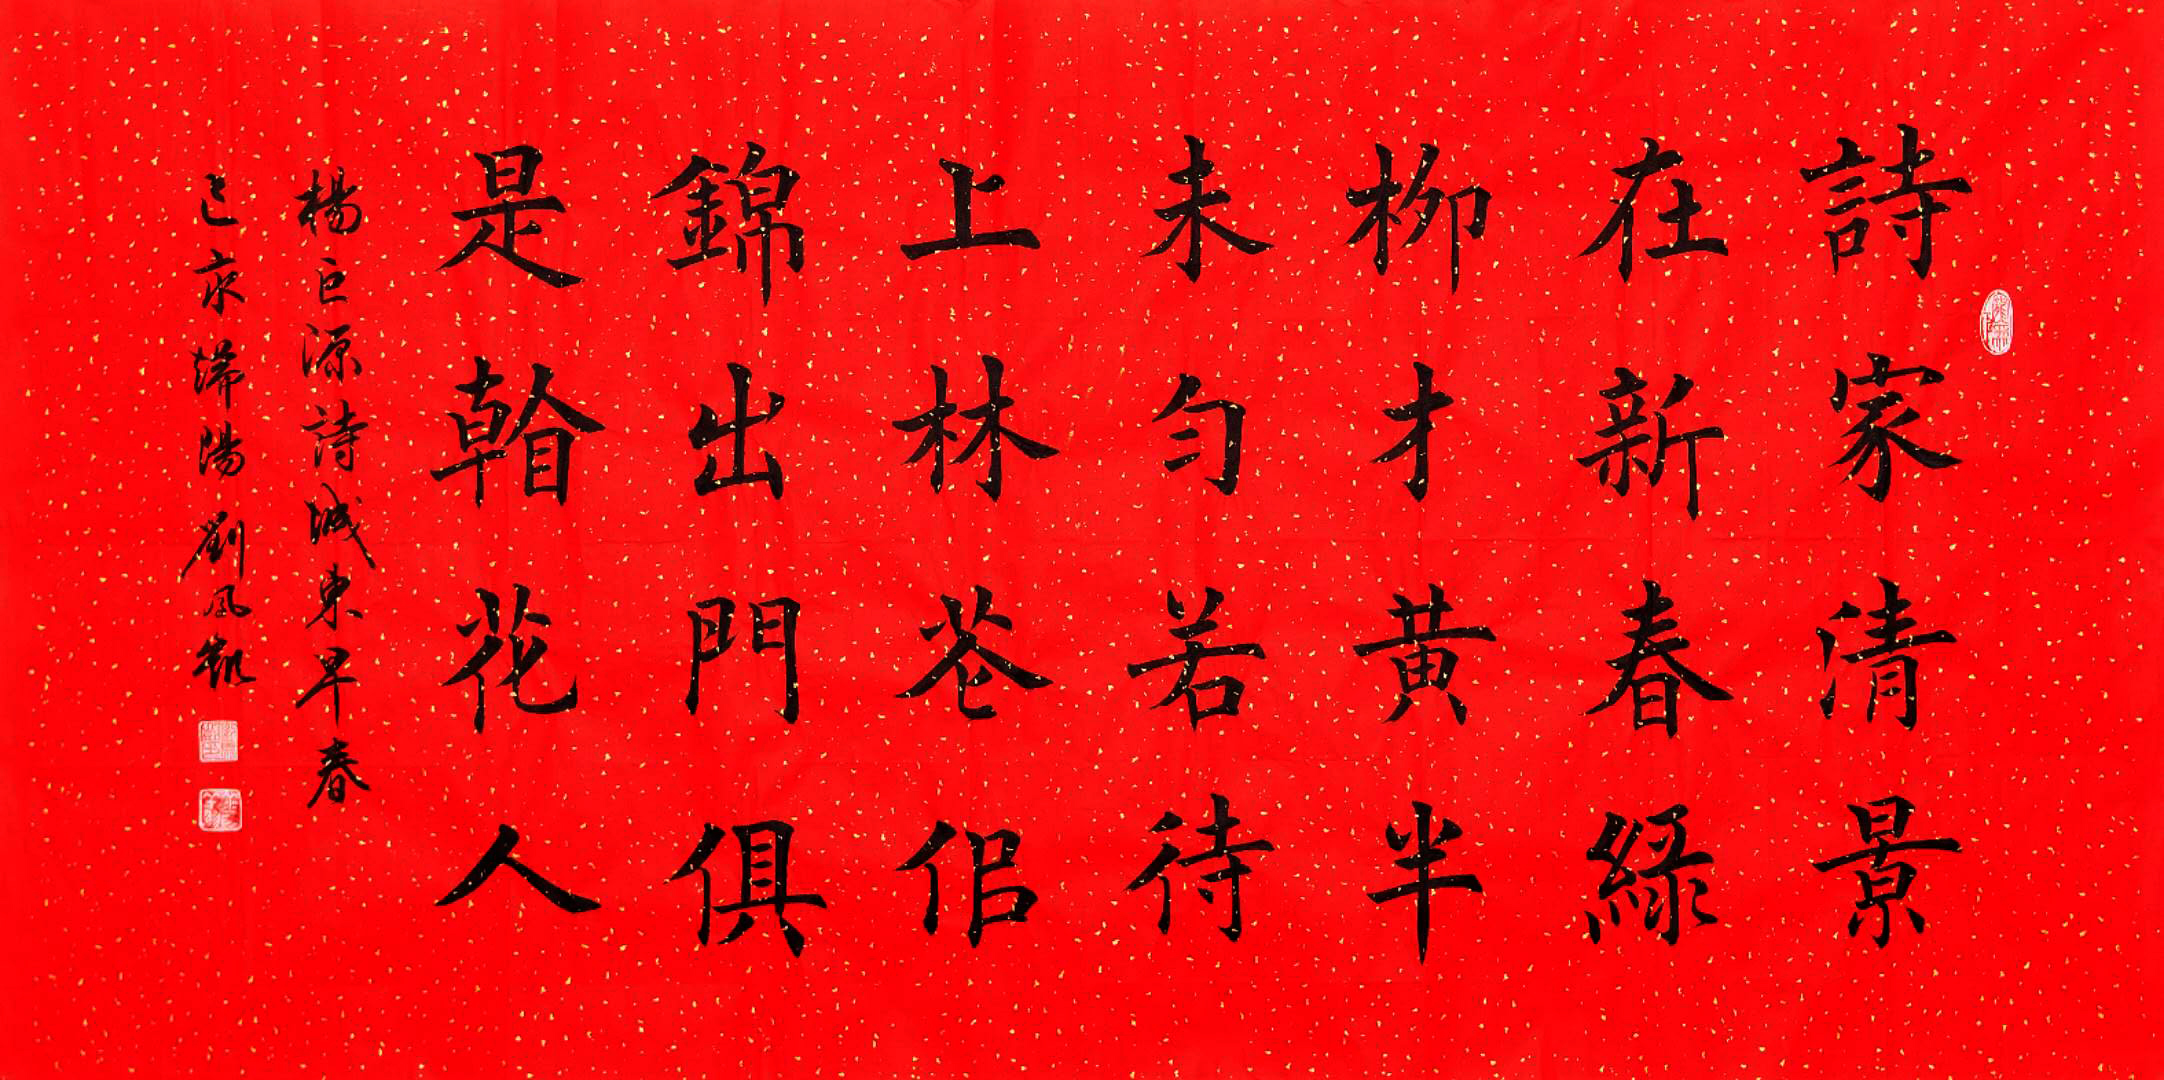 詩家清景
在新春綠
柳才黃半
未勻若待
上林花佀
錦出門俱
是看花人
楊巨源詩城東早春
己亥端陽劉風凱